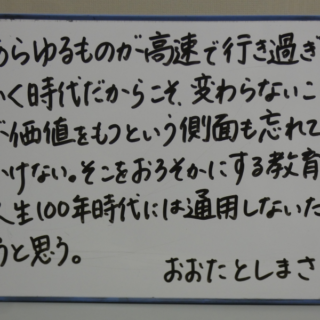 あらゆるものが高速で行き過ぎ
いく時代だからこそ、変わらないこ
が価値をもつという側面も忘れて
いけない。そこをおろそかにする教育
人生100年時代には通用しないだ
ろうと思う。
おおたとしまさ